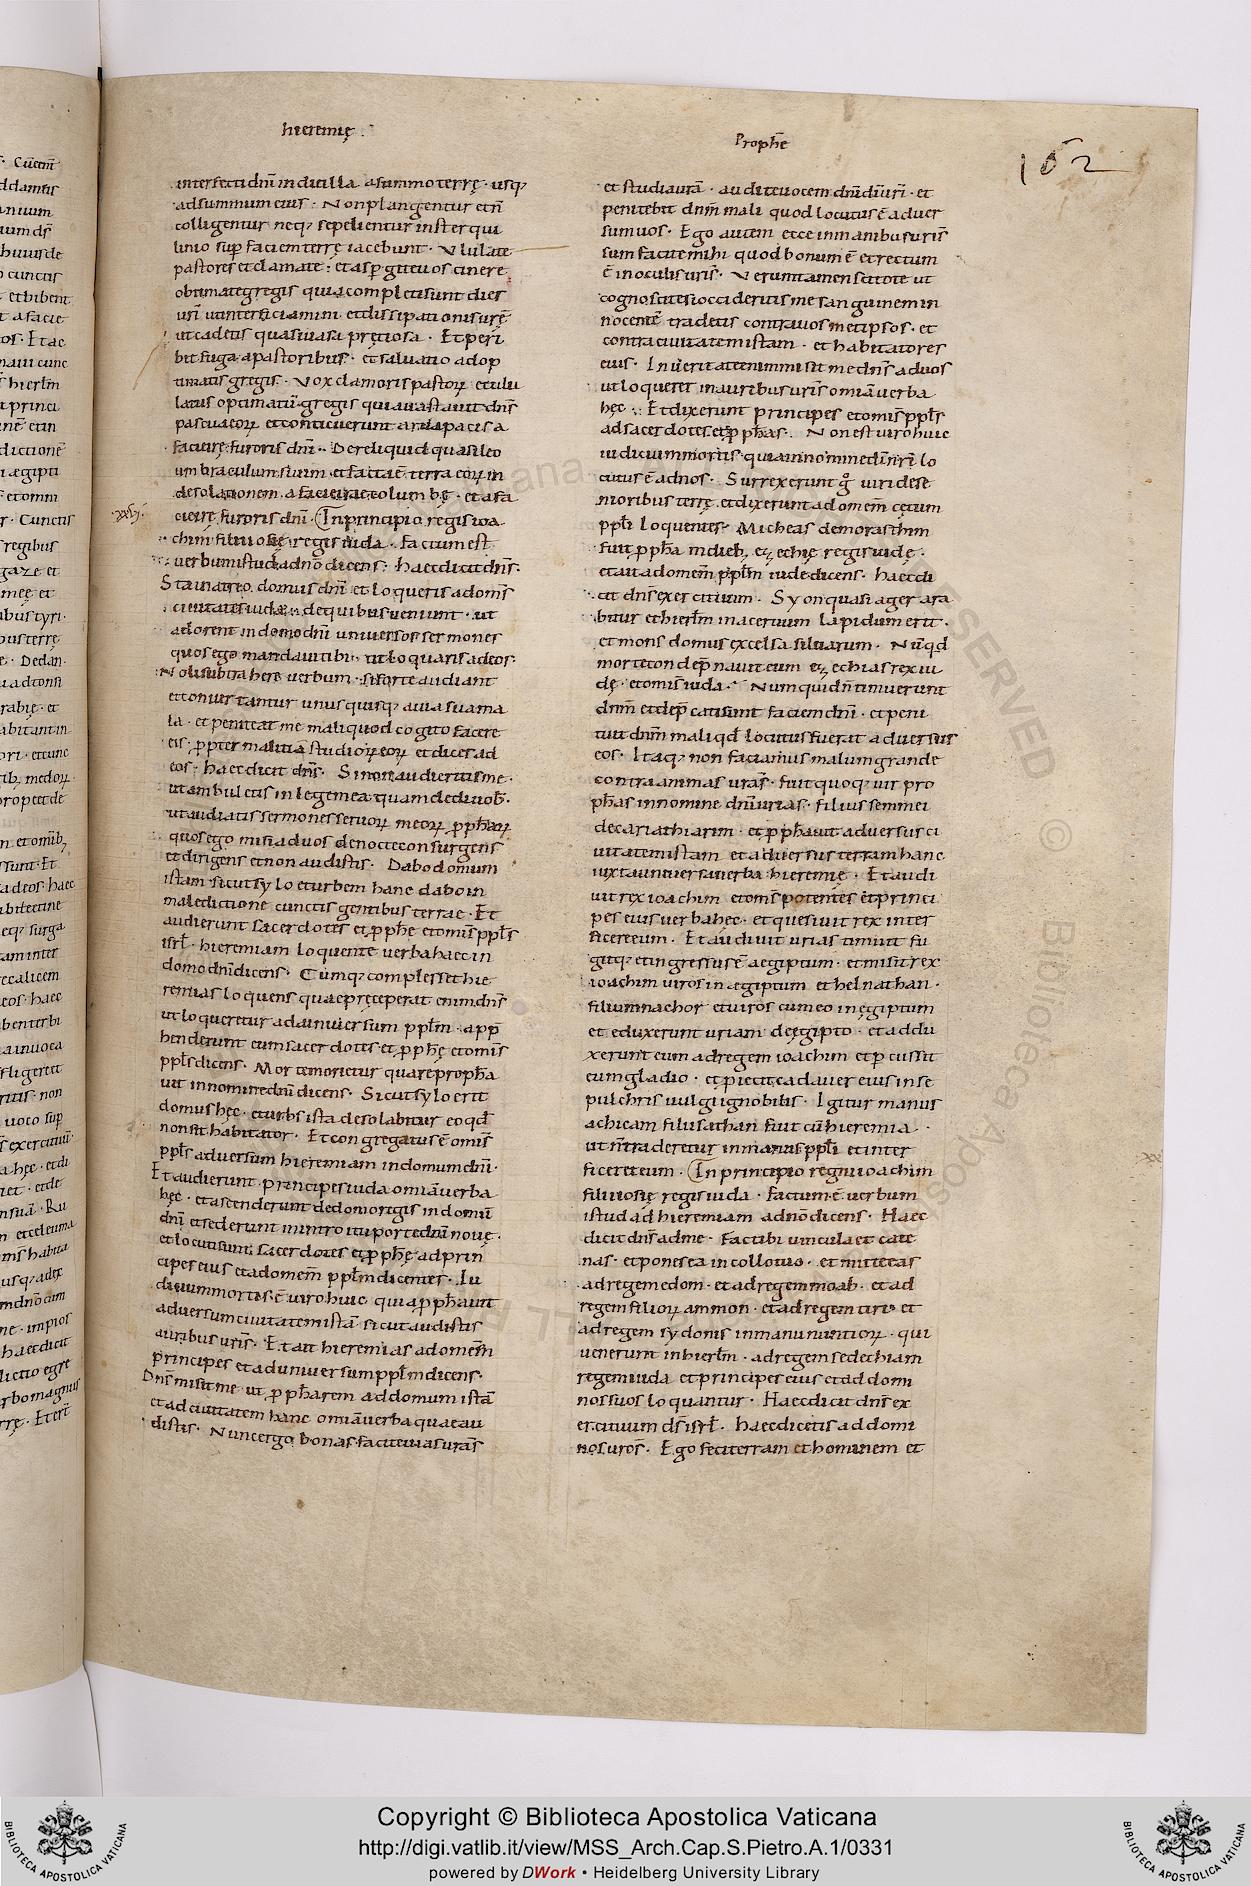 hieremię.
Prophē
162
interfecti dnī in die illa a summo terrę · usq;
ad summum eius · Non plangentur et ñ
colligentur neq; sepelientur in sterqui
linio sup faciem terrę iacebunt · Ululate
pastores et clamate : et aspgite vos cinere
obtimate gregis quia completi sunt dies
urī ut interficiamini et dissipationis urę̄
ut cadetis quasi vasa pretiosa · Et peri
bit fuga a pastoribus · et salvatio ab op
timatis gregis · Vox clamoris pastoꝝ et ulu
latus optimatū gregis quia vastavit dnś
pascua eoꝝ et conticuerunt arva pacis a
facie irę furoris dnī · Dereliquid quasi leo
umbraculum suum et facta ē terra eoꝝ in
desolationem a facie irae columbę · et a fa
cie irę furoris dnī · In principio regis ioa
chim filii iosię regis iuda · Factum est
verbum istud a dnō dicens : haec dicit dnś ·
Sta in atrio domus dnī et loqueris ad omś
civitates iuda · de quibus veniunt · ut
adorent in domo dnī universos sermones
quos ego mandavi tibi · ut loquaris ad eos ·
Noli subtrahere verbum · si forte audiant
et convertantur unusquisq; a via sua ma
la · et peniteat me mali quod cogito facere
eis ꝓpter malitiā studioꝝ eoꝝ et dices ad
eos · haec dicit dnś · Si non audieritis me ·
ut ambuletis in lege mea quam dedi vob̄ ·
ut audiatis sermones servoꝝ meoꝝ ꝓph̄aꝝ
quos ego misi ad vos de nocte consurgens
et dirigens et non audistis · Dabo domum
istam sicut sylo et urbem hanc dabo in
maledictione cunctis gentibus terrae · Et
audierunt sacerdotes et ꝓph̄e et omīs pplś
isrł · hieremiam loquente verba haec in
domo dnī dicens · Cūmq; complesset hie
remias loquens quae pręceperat ei nim dnś
ut loqueretur ad universum pplm̄ · app
henderunt eum sacerdotes et ꝓph̄ę et omīs
pplś dicens · Morte morietur quare propħa
vit in nomine dnī dicens · Sicut sylo erit
domus hęc · et urbs ista desolabitur eo qđ
non sit habitator · Et congregatus ē omīs
pplś adversum hieremiam in domum dnī ·
Et audierunt principes iuda omiā verba
hęc · et ascenderunt de domo regis in domū
dnī et sederunt in introitu porte dnī novę ·
et locuti sunt sacerdotes et ꝓph̄ę ad prin
cipes eius et ad omem̄ pplm̄ dicentes · Iu
dicium mortis ē viro huic quia ꝓph̄avit
adversum civitatem istā sicut audistis
auribus urīs · Et ait hieremias ad omem̄
principes et ad universum pplm̄ dicens ·
Dnś misit me ut ꝓph̄arem ad domum istā
et ad civitatem hanc omiā verba quae au
distis · Nunc ergo bonas facite vias urās
et studia urā · audite vocem dnī dī urī · et
penitebit dnm̄ mali quod locutus ē adver
sum vos · Ego autem ecce in manibus urīs
sum facite mihi quod bonum ē et rectum
ē in oculis urīs · Verumtamen scitote ut
cognoscitis si occideritis me sanguinem in
nocentē tradetis contra vos metipsos · et
contra civitatem istam · et habitatores
eius · In veritate enim misit me dnś ad vos
ut loquerer in auribus urīs omiā verba
hęc · Et dixerunt principes et omīs pplś
ad sacerdotes et ꝓph̄as · Non est viro huic
iudicium mortis quia in nomine dnī nrī lo
cutus ē ad nos · Surrexerunt g̊ viri de se
nioribus terrę et dixerunt ad omem̄ cętum
pplī loquentes · Micheas de morasthim
fuit ꝓph̄a in dieb; ezechię regis iudę ·
et ait ad omem̄ pplm̄ iude dicens · haec di
cit dnś exercituum · Syon quasi ager ara
bitur et hierłm in acervum lapidum erit ·
et mons domus excelsa silvarum · Nūqd
morte condēpnavit eum ezechias rex iu
dę · et omīs iuda · Numquid ñ timuerunt
dnm̄ et depcati sunt faciem dnī · et peni
tuit dnm̄ mali qđ locutus fuerat adversus
eos · Itaq; non faciamus malum grande
contra animas urās · fuit quoq; vir pro
ph̄as in nomine dnī urias · filius semmei
de cariathiarim · et ꝓph̄avit adversus ci
vitatem istam et adversus terram hanc
iuxta universa verba hieremię · Et audi
vit rex ioachim et omīs potentes et princi
pes eius verba hec · et quesivit rex inter
ficere eum · Et audivit urias timuit fu
gitq; et ingressus ē aegiptum · et misit rex
ioachim viros in ægiptum et helnathan ·
filium nachor et viros cum eo in egiptum
et eduxerunt uriam de ęgipto · et addu
xerunt eum ad regem ioachim et pcussit
eum gladio · et piecit cadaver eius in se
pulchris vulgi ignobibis · Igitur manus
achicam filius athan fuit cū hieremia ·
ut n̄ traderetur in manus pplī et inter
ficeret eum · In principio regni ioachim
filii iosię regis iuda · Factum ē verbum
istud ad hieremiam a dnō dicens · Haec
dicit dnś ad me · Fac tibi vincula et cate
nas · et pones ea in collo tuo · et mittetas
ad regem edom · et ad regem moab · et ad
regem filioꝝ ammon · et ad regem tiri · et
ad regem sydonis in manu nuntioꝝ · qui
venerunt in hierłm · ad regem sedechiam
regem iuda et principes eius et ad domi
nos suos loquantur · Haec dicit dnś ex
ercituum dś isrł · haec dicetis ad domi
nos uros · Ego feci terram et hominem et
Copyright © Biblioteca Apostolica Vaticana
http://digi.vatlib.it/view/MSS_Arch.Cap.S.Pietro.A.1/0331
powered by DWork • Heidelberg University Library
BIBLIOTECA APOSTOLICA VATICANA
BIBLIOTECA APOSTOLICA VATICANA